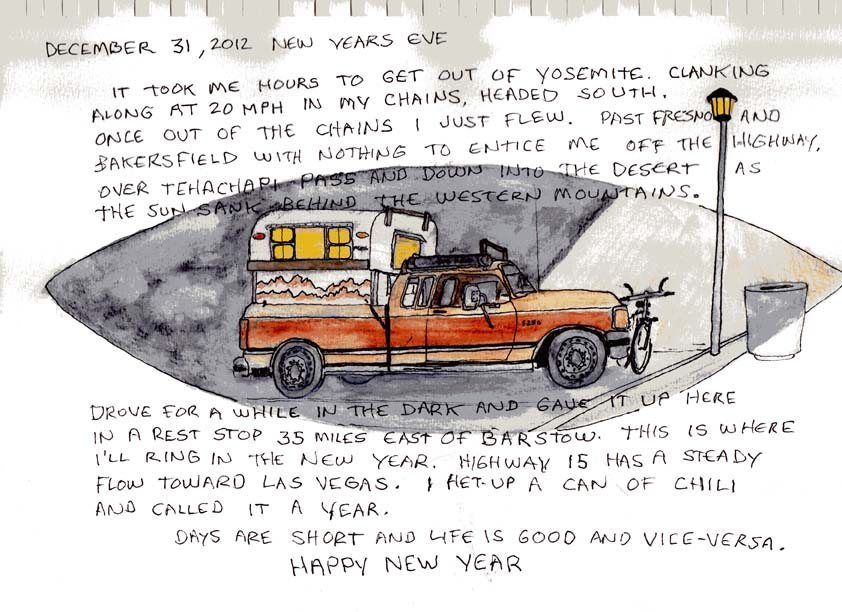 DECEMBER 31, 2012 NEW YEARS EVE
IT TOOK ME HOURS TO GET OUT OF YOSEMITE. CLANKING
ALONG AT 20 MPH IN MY CHAINS, HEADED SOUTH.
ONCE OUT OF THE CHAINS I JUST FLEW. PAST FRESNO AND
BAKERSFIELD WITH NOTHING TO ENTICE ME OFF THE HIGHWAY,
OVER TEHACHAPI PASS AND DOWN INTO THE DESERT AS
THE SUN SANK BEHIND THE WESTERN MOUNTAINS.
F250
DROVE FOR A WHILE IN THE DARK AND GAVE IT UP HERE
IN A REST STOP 35 MILES EAST OF BARSTOW. THIS IS WHERE
I'LL RING IN THE NEW YEAR. HIGHWAY 15 HAS A STEADY
FLOW TOWARD LAS VEGAS. I HET-UP A CAN OF CHILI
AND CALLED IT A YEAR.
DAYS ARE SHORT AND LIFE IS GOOD AND VICE-VERSA.
HAPPY NEW YEAR